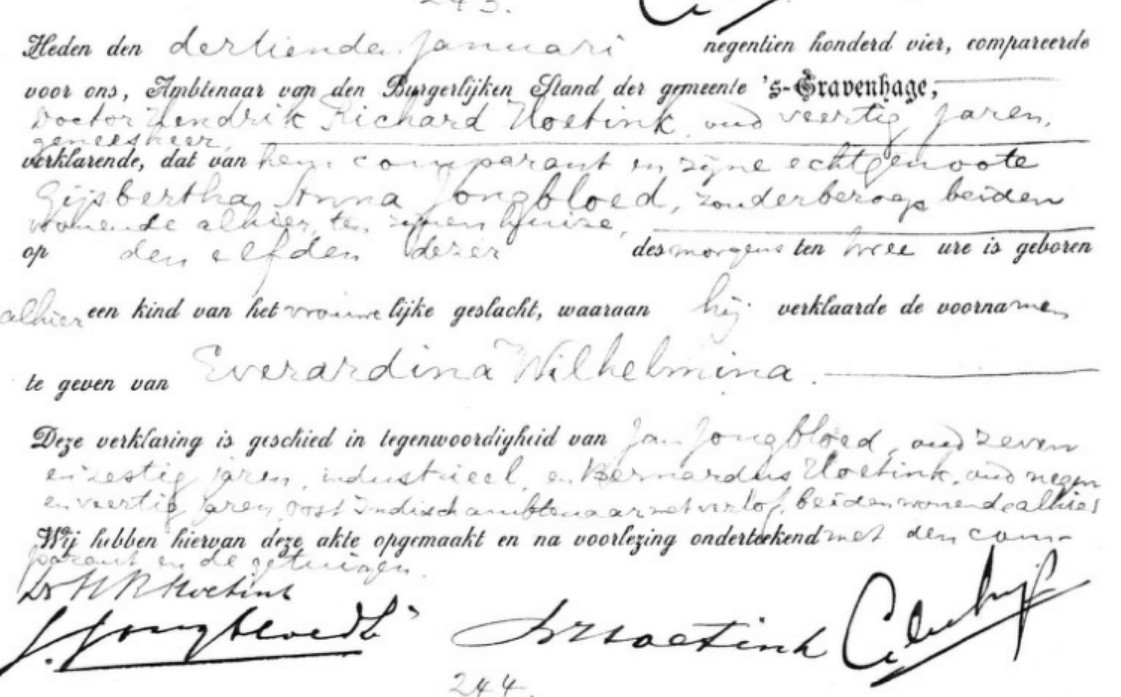 243.
Heden den dertienden Januari negentien honderd vier, compareerde
voor ons, Ambtenaar van den Burgerlijken Stand der gemeente 's-Gravenhage,
Doctor Hendrik Richard Hoetink, oud veertig jaren,
geneesheer,
verklarende, dat van hem comparant en zijne echtgenoote
Gijsbertha Anna Jongbloed, zonder beroep beiden
wonende alhier, ten zijnen huize,
op den elfden dezer des morgens ten twee ure is geboren
alhier een kind van het vrouwelijke geslacht, waaraan hij verklaarde de voornamen
te geven van Everardina Wilhelmina.
Deze verklaring is geschied in tegenwoordigheid van Jan Jongbloed, oud zeven
en zestig jaren, industrieel, en Bernardus Hoetink, oud negen
en veertig jaren, oost Indisch ambtenaar met verlof, beiden wonende alhier
Wij hebben hiervan deze akte opgemaakt en na voorlezing onderteekend met den com-
parant en de getuigen.
Dr H R Hoetink
J. Jongbloed BHoetink
244.